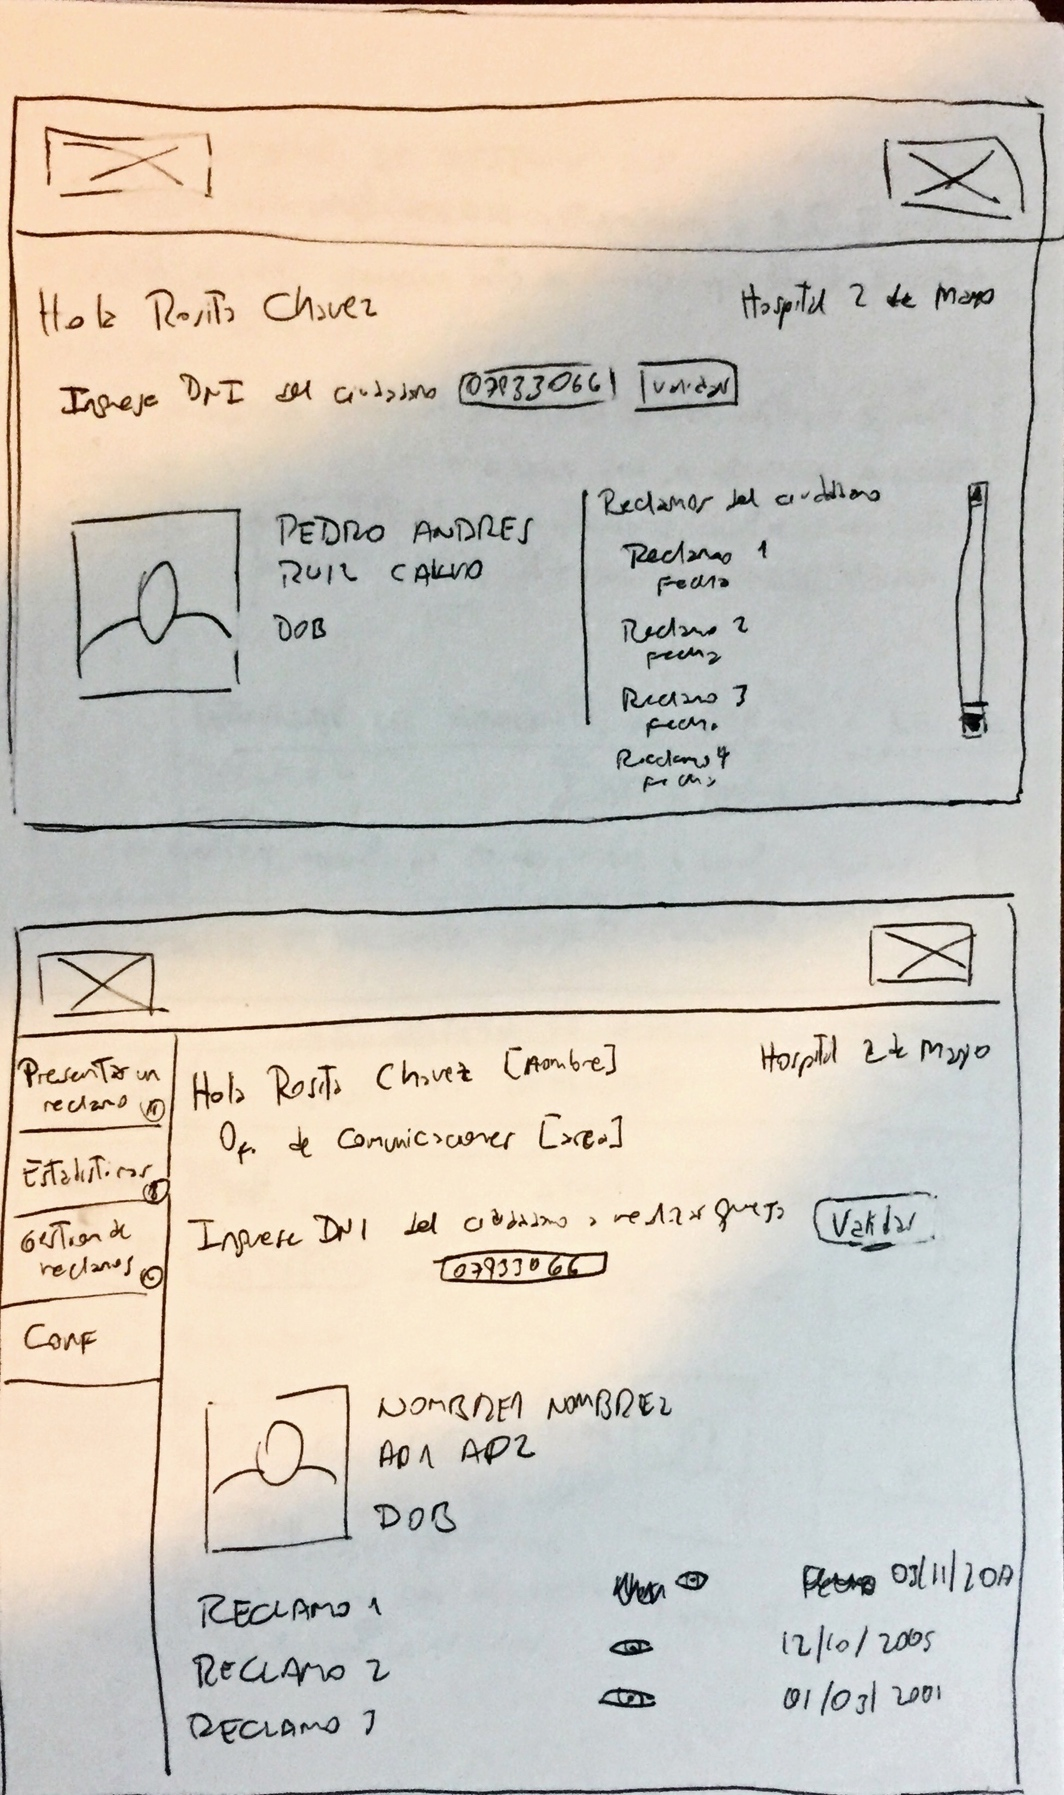 Hola Rosita Chavez
Hospital 2 de Mayo
Ingrese DNI del ciudadano 07933066 Validar
PEDRO ANDRES
RUIZ CALVO
DOB
Reclamos del ciudadano
Reclamo 1
Fecha
Reclamo 2
Fecha
Reclamo 3
Fecha
Reclamo 4
Fecha
Presentar un
reclamo
Estadisticas
Gestion de
reclamos
Conf
Hola Rosita Chavez [Nombre]
Hospital 2 de Mayo
Of. de Comunicaciones [area]
Ingrese DNI del ciudadano a realizar queja Validar
07933066
NOMBRE1 NOMBRE2
AP1 AP2
DOB
RECLAMO 1
RECLAMO 2 12/10/2005
RECLAMO 3 01/03/2001